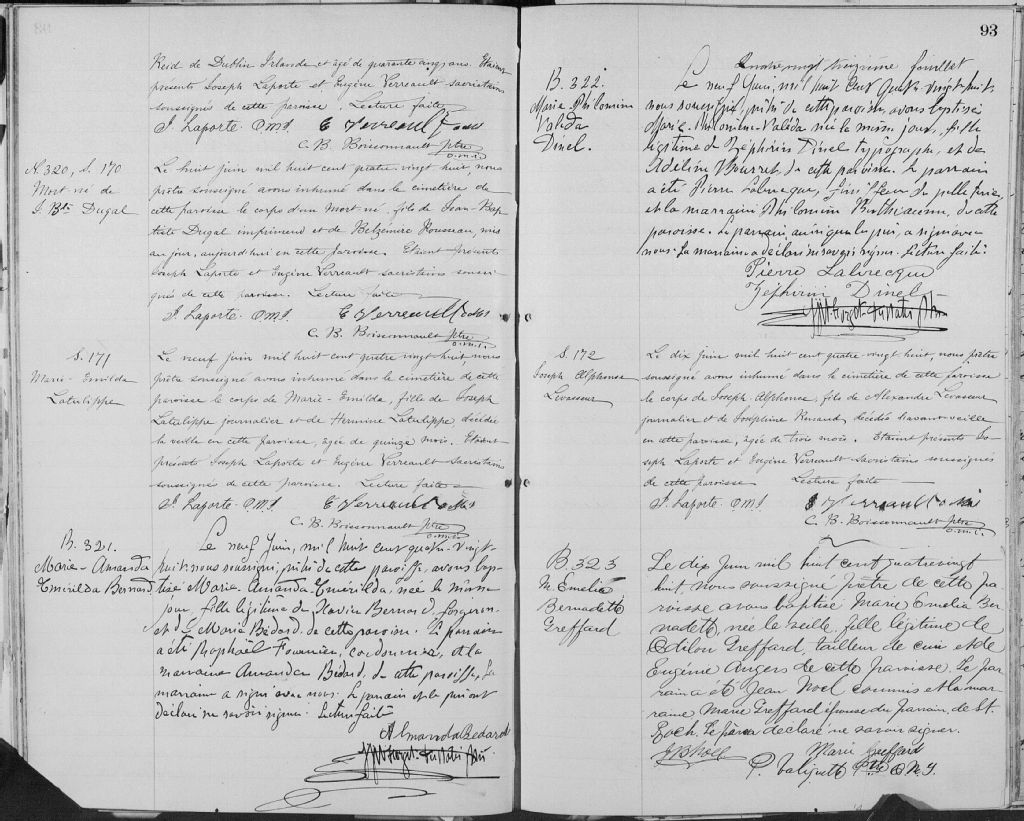 Reid de Dublin Irlande et âgé de quarante cinq ans. Etaient
présents Joseph Laporte et Eugène Verreault sacristains
soussignés de cette paroisse. Lecture faite
J. Laporte. O.M.I. E Verreault
C. B. Boissonnault ptre
o.m.i.
N. 320, S. 170
Mort né de
J. Bte Dugal
Le huit juin mil huit cent quatre vingt huit, nous
prêtre soussigné avons inhumé dans le cimetière de
cette paroisse le corps d'un Mort-né, fils de Jean-Bap
tiste Dugal imprimeur et de Belzémire Rousseau, mis
au jour, aujourd'hui en cette paroisse. Etaient présents
Joseph Laporte et Eugène Verreault sacristains soussi-
gnés de cette paroisse. Lecture faite
J. Laporte. O.M.I. E Verreault
C. B. Boissonnault ptre
o.m.i.
S. 171
Marie-Emilda
Latulippe
Le neuf juin mil huit cent quatre vingt huit nous
prêtre soussigné avons inhumé dans le cimetière de cette
paroisse le corps de Marie-Emilda, fille de Joseph
Latulippe journalier et de Hermine Latulippe, décédée
la veille en cette paroisse, âgée de quinze mois. Etaient
présents Joseph Laporte et Eugène Verreault sacristains
soussignés de cette paroisse. Lecture faite
J. Laporte. O.M.I. E Verreault
C. B. Boissonnault ptre
o.m.i.
B. 321.
Marie-Amanda
Emérilda Bernard
Le neuf Juin, mil huit cent quatre-vingt-
huit nous soussigné, prêtre de cette paroisse, avons bap-
tisé Maria Amanda Emerilda, née le même
jour, fille légitime de Flavien Bernard, forgeron
et de Marie Bédard de cette paroisse. Le parrain
a été Raphaël Fournier, cordonnier, et la
marraine Amanda Bédard, de cette paroisse, la
marraine a signé avec nous. Le parrain et le père ont
déclaré ne savoir signer. Lecture faite
Almanda Bedard
93
Quatre vingt treizième feuillet
B. 322.
Maria Philomène
Valéda
Dinel.
Le neuf Juin, mil huit cent quatre vingt huit
nous soussigné, prêtre de cette paroisse, avons baptisé
Marie-Philomène-Valéda née le même jour, fille
légitime de Zéphirin Dinel typographe, et de
Adeline Bourret, de cette paroisse. Le parrain
a été Pierre Labrecque, de pelleterie,
et la marraine Philomène Berthiaume, de cette
paroisse. Le parrain ainsi que le père, a signé avec
nous. La marraine a déclaré ne savoir signer. Lecture faite.
Pierre Labrecque
Zéphirin Dinel
S. 172
Joseph Alphonse
Levasseur
Le dix juin mil huit cent quatre-vingt huit, nous prêtre
soussigné avons inhumé dans le cimetière de cette paroisse
le corps de Joseph-Alphonse, fils de Alexandre Levasseur
journalier et de Joséphine Renaud, décédé l'avant-veille
en cette paroisse, âgée de trois mois. Etaient présents Jo-
seph Laporte et Eugène Verreault-sacristains soussignés
de cette paroisse Lecture faite
J. Laporte. O.M.I. E Verreault
C. B. Boissonnault ptre
o.m.i.
B. 323
M. Emelia
Bernadette
Greffard
Le dix Juin mil huit cent quatrevingt
huit, nous soussigné prêtre de cette pa
roisse avons baptisé Marie Emelia Ber
nadette, née la veille, fille légitime de
Odilon Greffard, tailleur de cuir et de
Eugénie Angers de cette paroisse. Le par
rain a été Jean Noel commis et la mar
raine Marie Greffard épouse du parrain, de St.
Roch. Le père a déclaré ne savoir signer.
J B Noel Marie Greffard
P. Valiquette Ptre O.M.I.